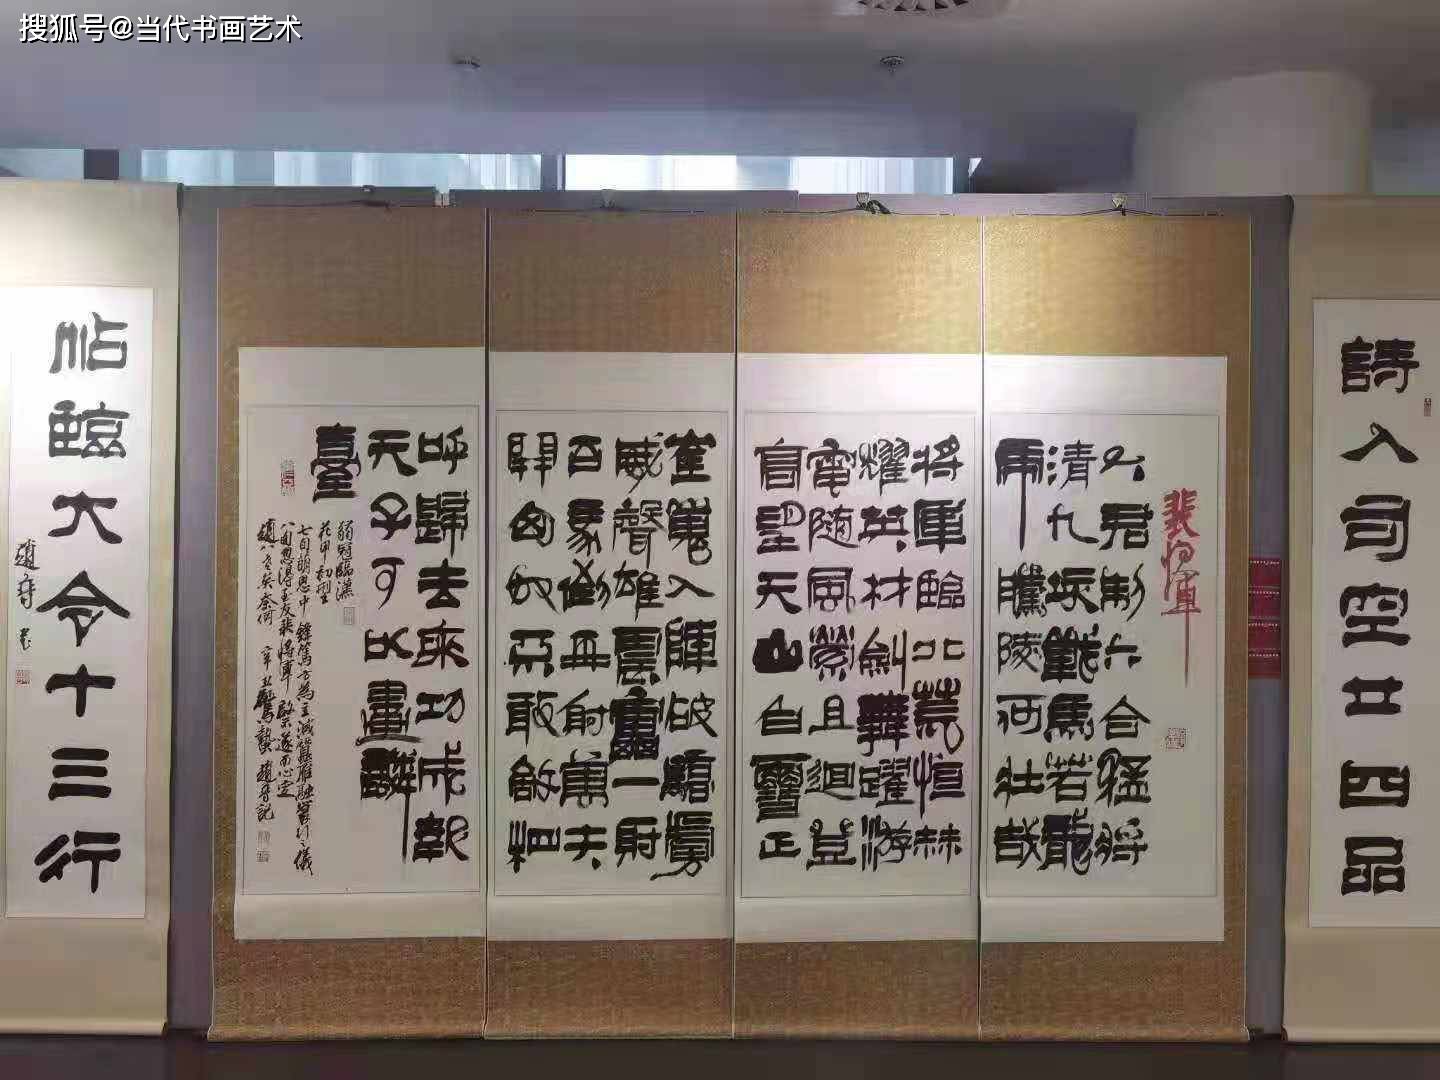 搜狐号@当代书画艺术
詩入司空廿四品
裴将軍
大君制六合猛将
清九垓戰馬若龍
虎騰陵何壯哉
将軍臨北荒恒赫
耀英材劍舞躍游
電随風縈且迴登
高望天山白雲正
崔嵬入陣破驕虜
威聲雄震雷一射
百馬倒再射萬夫
開匈奴不敢敵相
呼歸去来功成報
天子可以畫麟
臺
弱冠臨漢
花甲初型
七旬萌思中鋒篤方為主
帖臨大令十三行